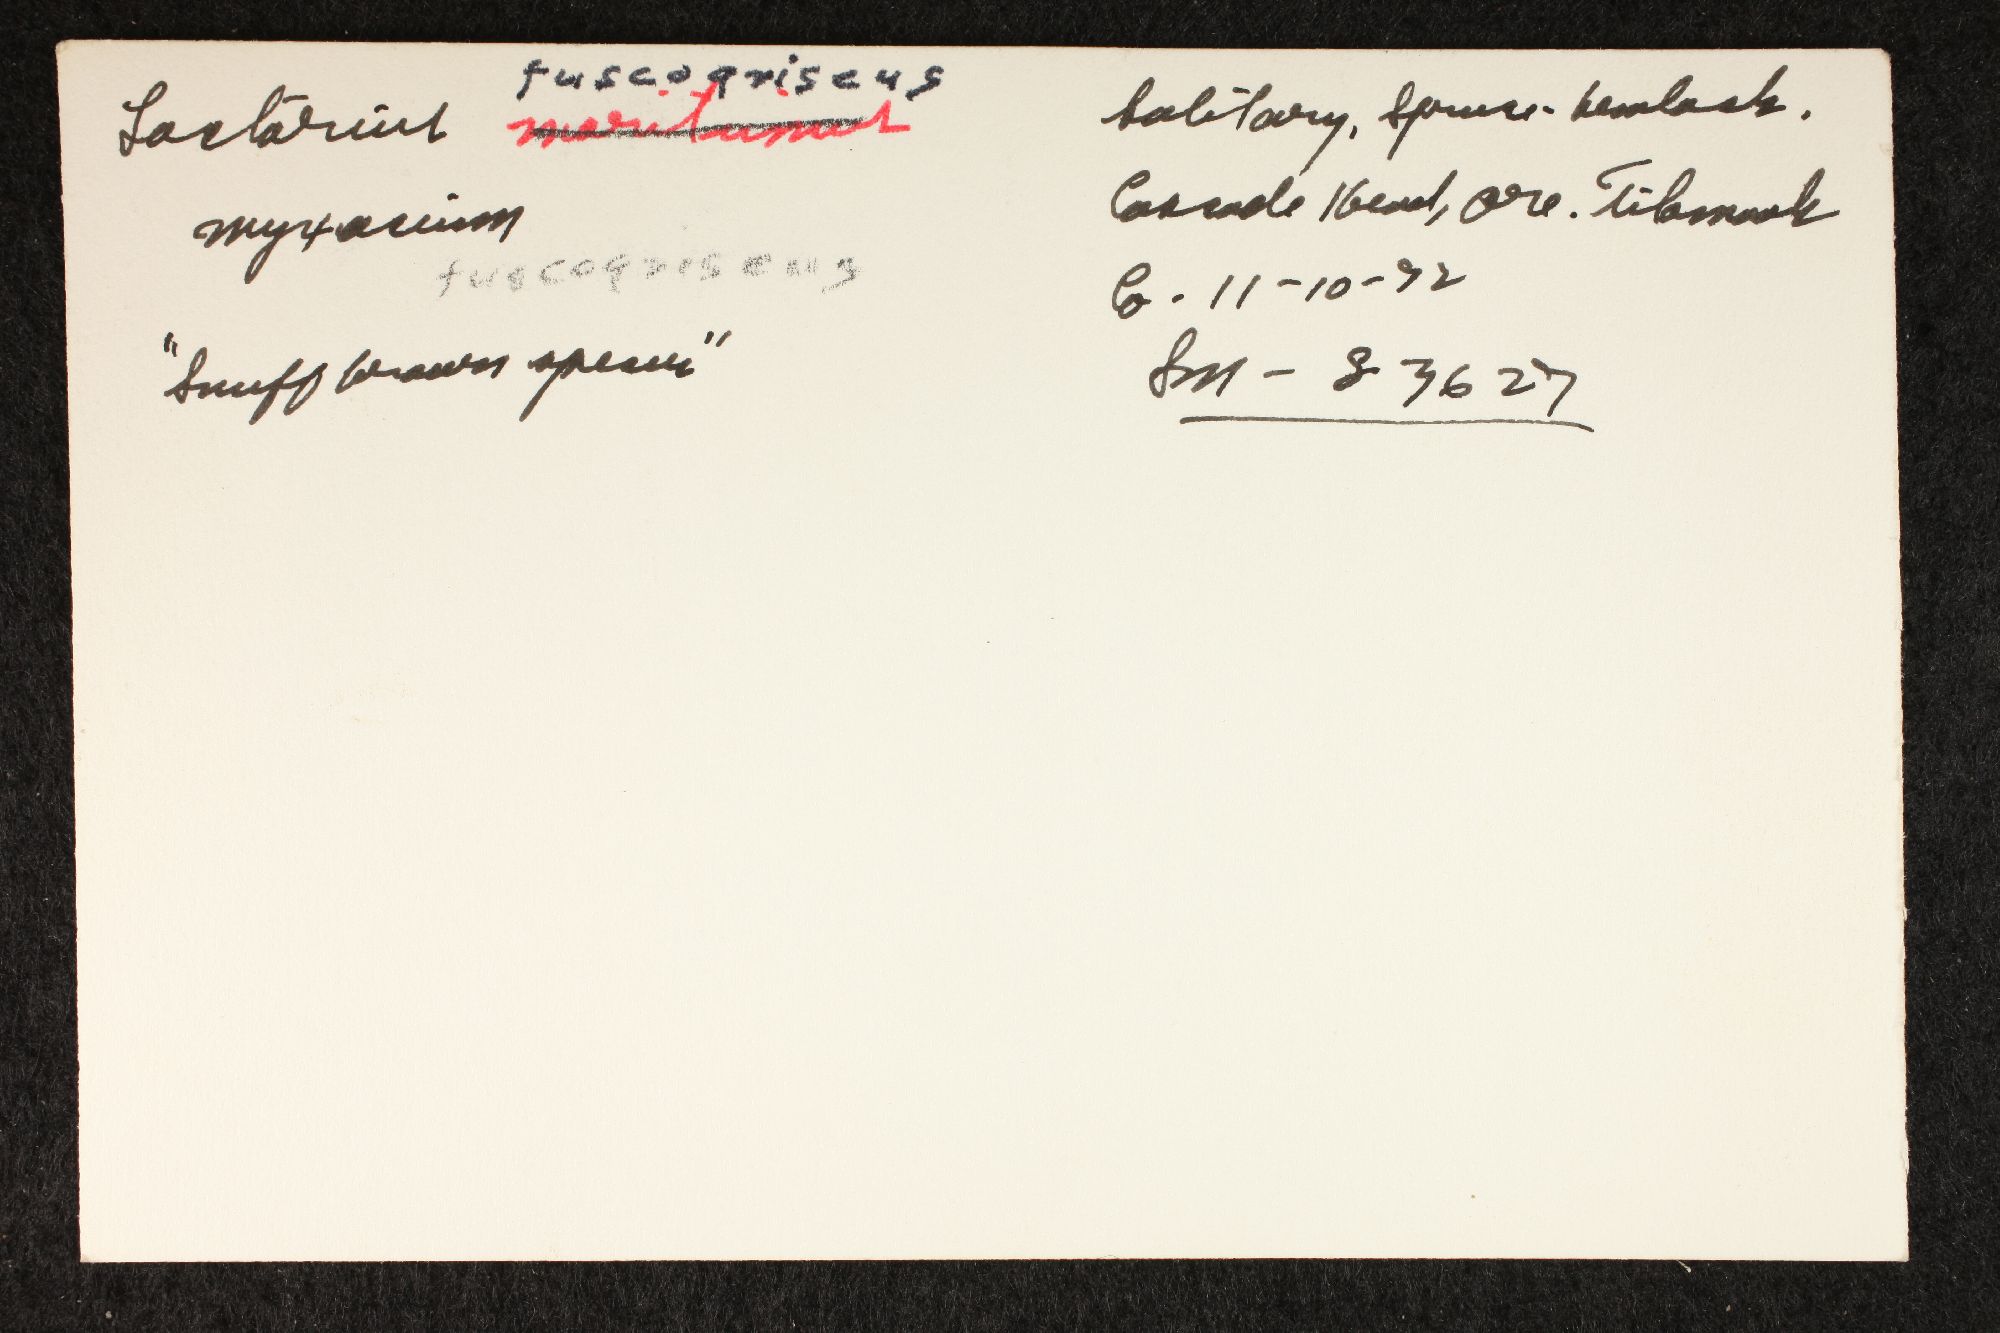 fuscogriseus
Lactarius maritimus
myxacium
fuscogriseus
"Snuff brown species"
Solitary, Spruce-hemlock.
Cascade Head, Ore. Tillamook
Co. 11-10-72
Sm - 83627